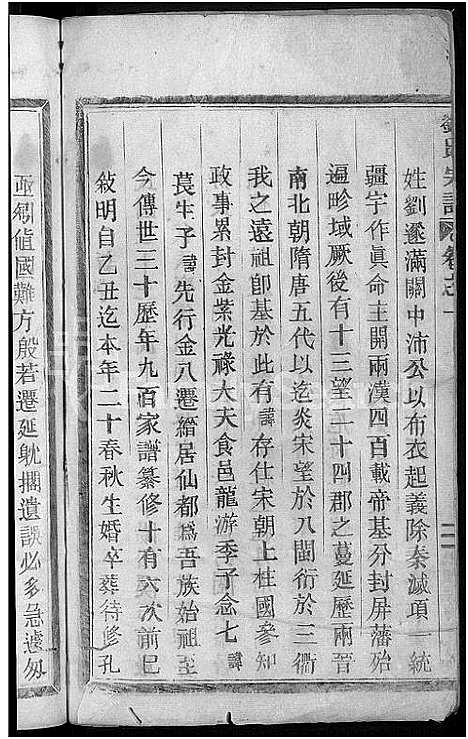 劉氏宗譜 卷之一
姓劉遂滿關中沛公以布衣起義除秦滅項一統
疆宇作眞命主開兩漢四百載帝基分封屏藩殆
遍畛域厥後有十三望二十四郡之蔓延歷兩晉
南北朝隋唐五代以迄炎宋望於八閩衍於三衢
我之遠祖卽基於此有諱存仕宋朝上柱國參知
政事累封金紫光祿大夫食邑龍游季子念七諱
萇生子諱先行金八遷縉居仙都爲吾族始祖至
今傳世三十歷年九百家譜纂修十有六次前巳
敍明自乙丑迄本年二十春秋生婚卒葬待修孔
亟刻值國難方殷若遷延躭擱遺誤必多急遽匆